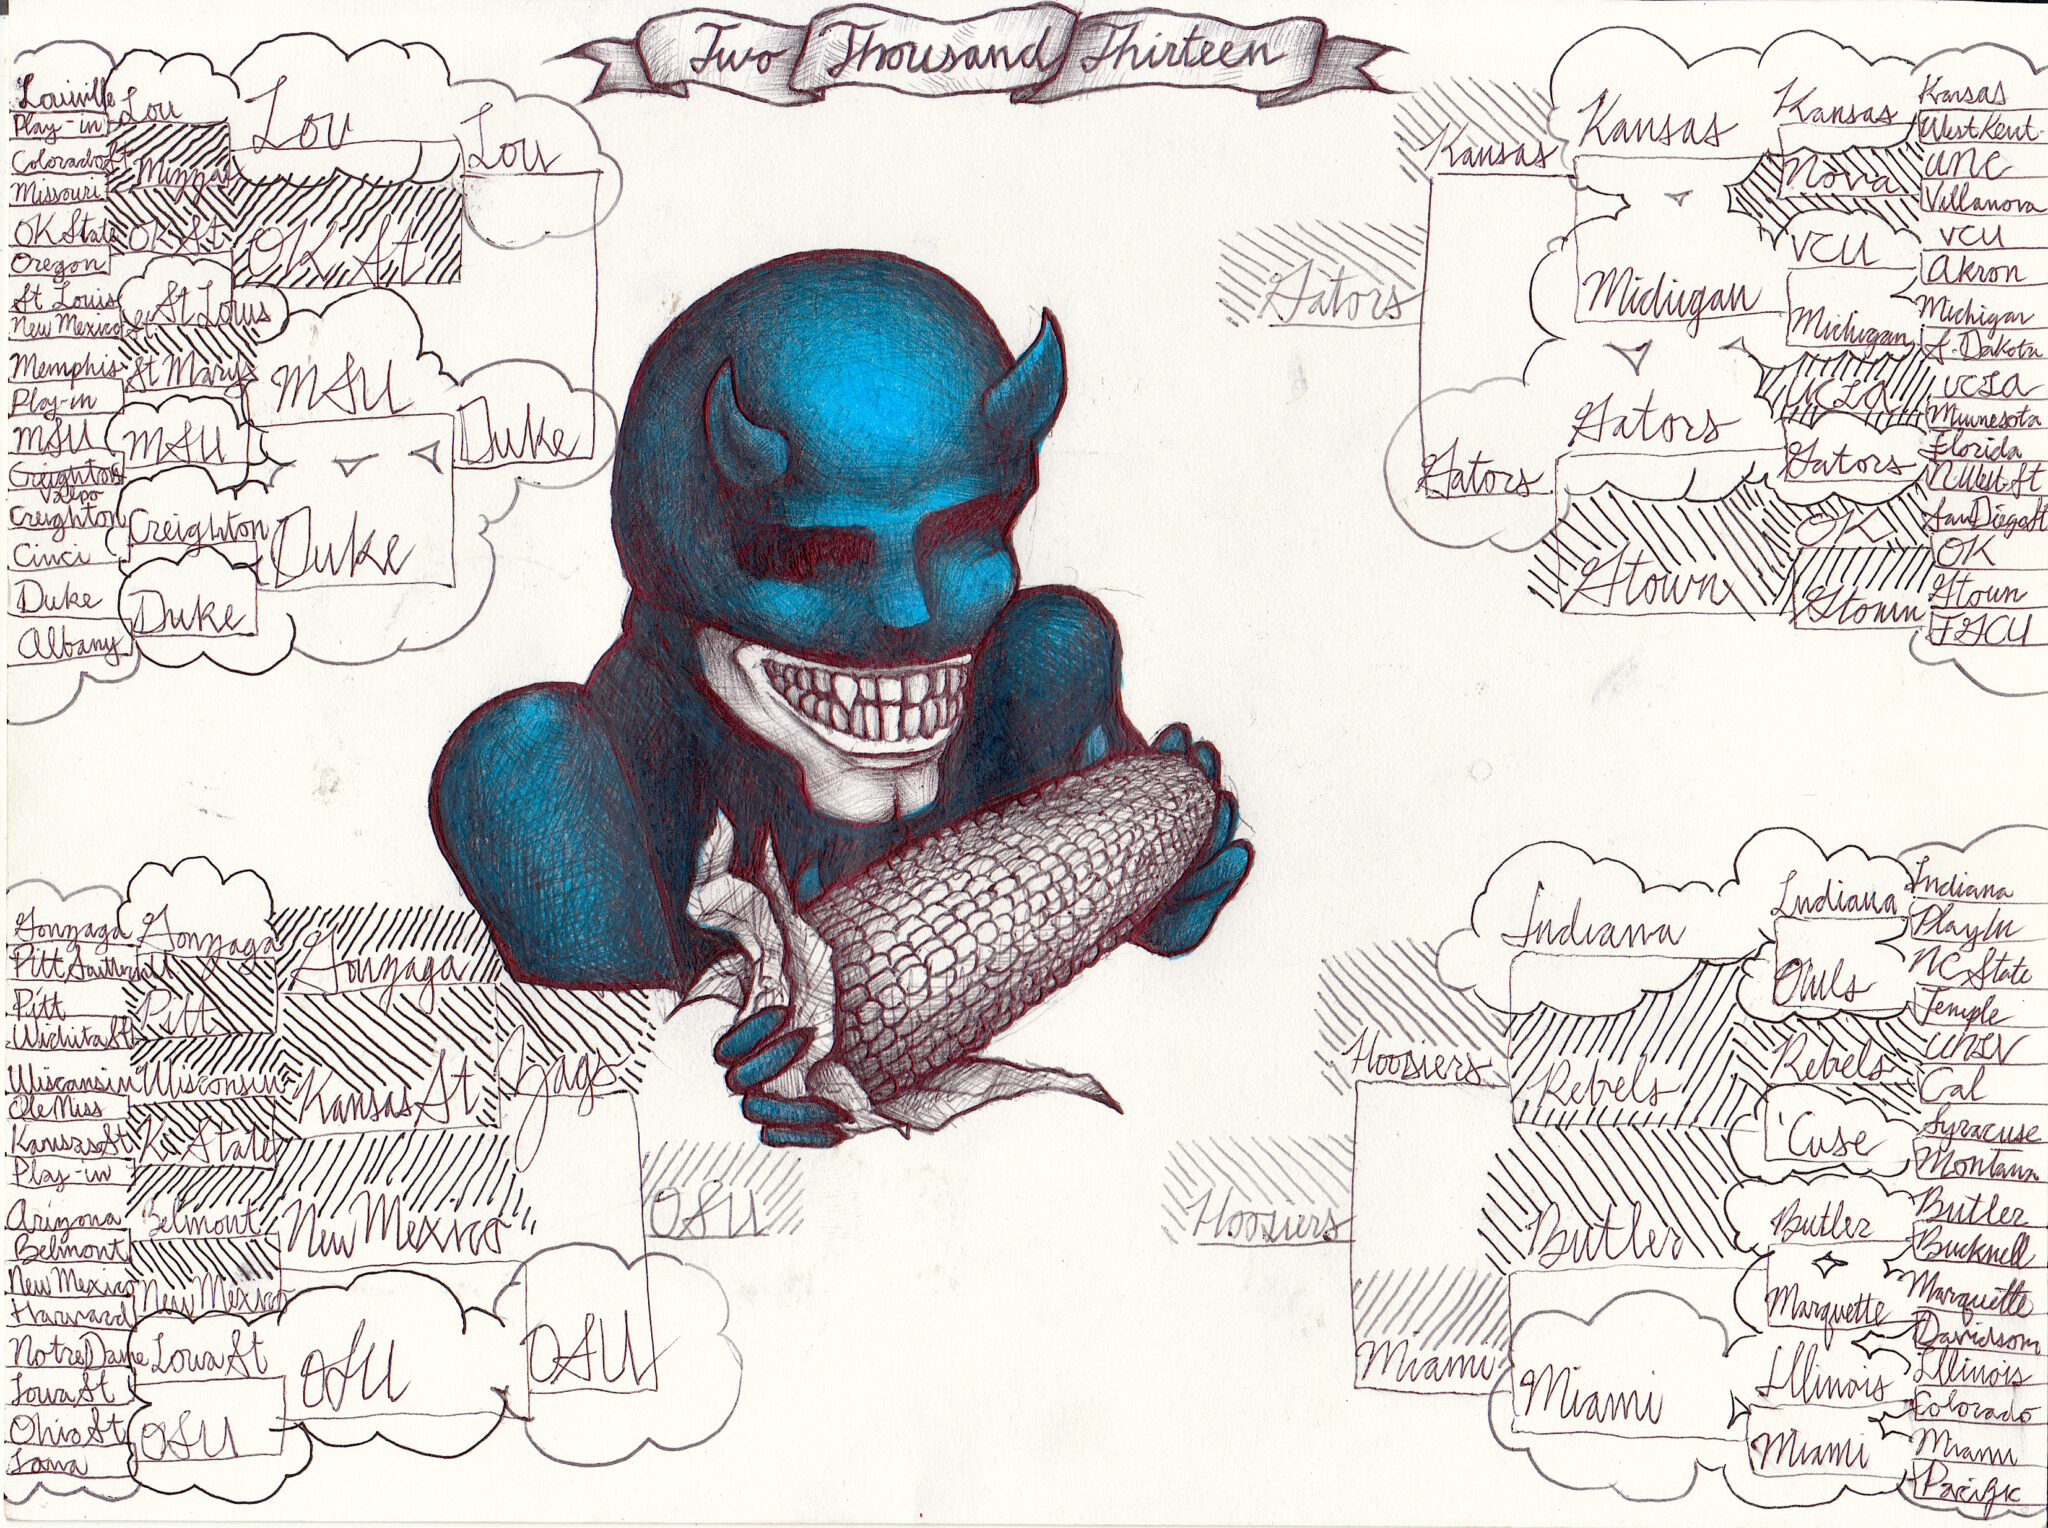 Two Thousand Thirteen
Louisville
Play-in
Colorado St
Missouri
OK State
Oregon
St Louis
New Mexico St.
Memphis
Play-in
MSU
Valpo
Creighton
Cinci
Duke
Albany
Lou
Mizzou
OK St
St Louis
St Marys
MSU
Creighton
Duke
Lou
OK St
MSU
Duke
Lou
Duke
Kansas
Gators
Gators
Kansas
Michigan
Gators
Gtown
Kansas
Nova
VCU
Michigan
UCLA
Gators
OK
Gtown
Kansas
West Kent.
UNC
Villanova
VCU
Akron
Michigan
S. Dakota
UCLA
Minnesota
Florida
NWest St
San Diego St
OK
Gtown
FGCU
Gonzaga
Pitt
Wichita St
Wisconsin
Ole Miss
Kansas St
Play-in
Arizona
Belmont
New Mexico
Harvard
Notre Dame
Iowa St
Ohio St
Iona
Gonzaga
Pitt
Wisconsin
K State
Belmont
New Mexico
Iowa St
OSU
Gonzaga
Kansas St
New Mexico
OSU
Zags
OSU
OSU
Hoosiers
Hoosiers
Miami
Indiana
Rebels
Butler
Miami
Indiana
Owls
Rebels
'Cuse
Butler
Marquette
Illinois
Miami
Indiana
Play In
NC State
Temple
UNLV
Cal
Syracuse
Montana
Butler
Bucknell
Marquette
Davidson
Illinois
Colorado
Miami
Pacific